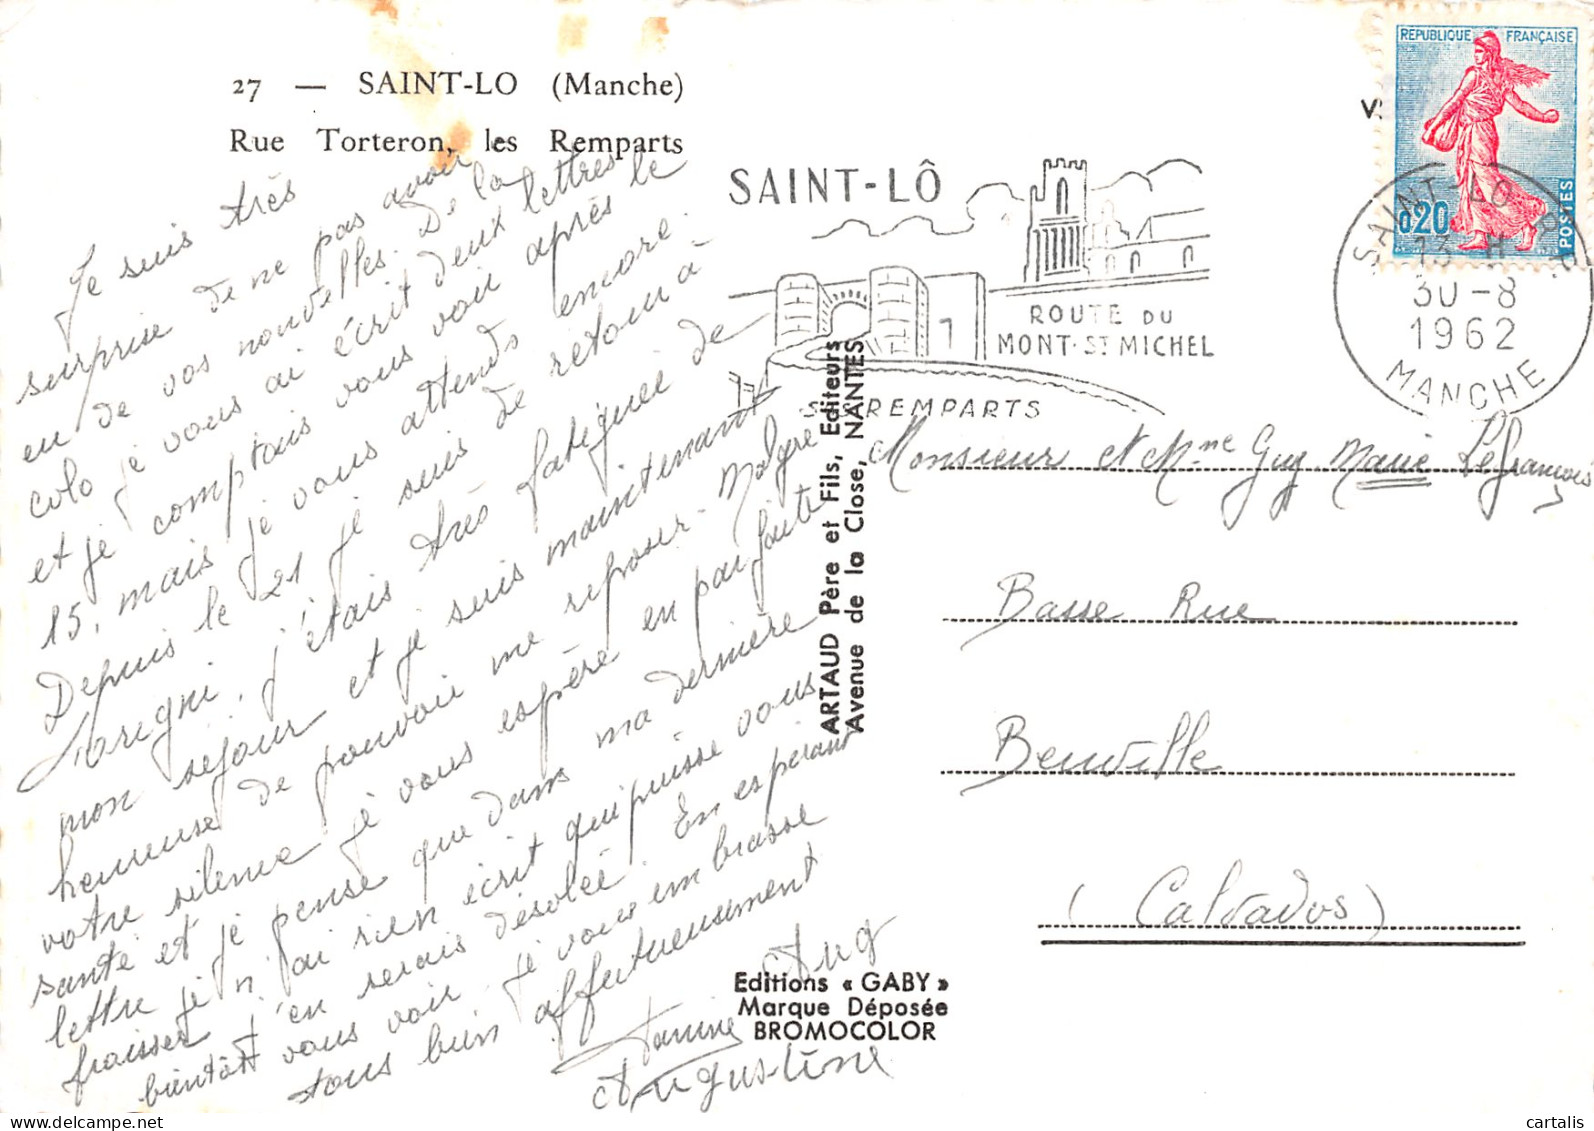 27 — SAINT-LO (Manche)
Rue Torteron, les Remparts
Je suis très
surprise de ne pas avoir
eu de vos nouvelles. De la
colo je vous ai écrit deux lettres
et je comptais vous voir après le
15, mais je vous attends encore.
Depuis le 21 je suis de retour à
Torigni, j'étais très fatiguée de
mon séjour et je suis maintenant
heureuse de pouvoir me reposer. Malgré
votre silence je vous espère en parfaite
santé et je pense que dans ma dernière
lettre je n'ai rien écrit qui puisse vous
froisser j'en serais désolée. En espérant
bientôt vous voir, je vous embrasse
tous bien affectueusement
Aug
Janine
Augustine
ARTAUD Père et Fils, Editeurs
Avenue de la Close, NANTES
Editions « GABY »
Marque Déposée
BROMOCOLOR
SAINT-LÔ
ROUTE DU
MONT-ST MICHEL
SES REMPARTS
REPUBLIQUE FRANÇAISE
0,20
POSTES
SAINT-LO R.P.
13 H
30-8
1962
MANCHE
V.
Monsieur et Mme Guy Marie Lefrançois
Basse Rue
Benville
(Calvados)
www.delcampe.net
cartalis